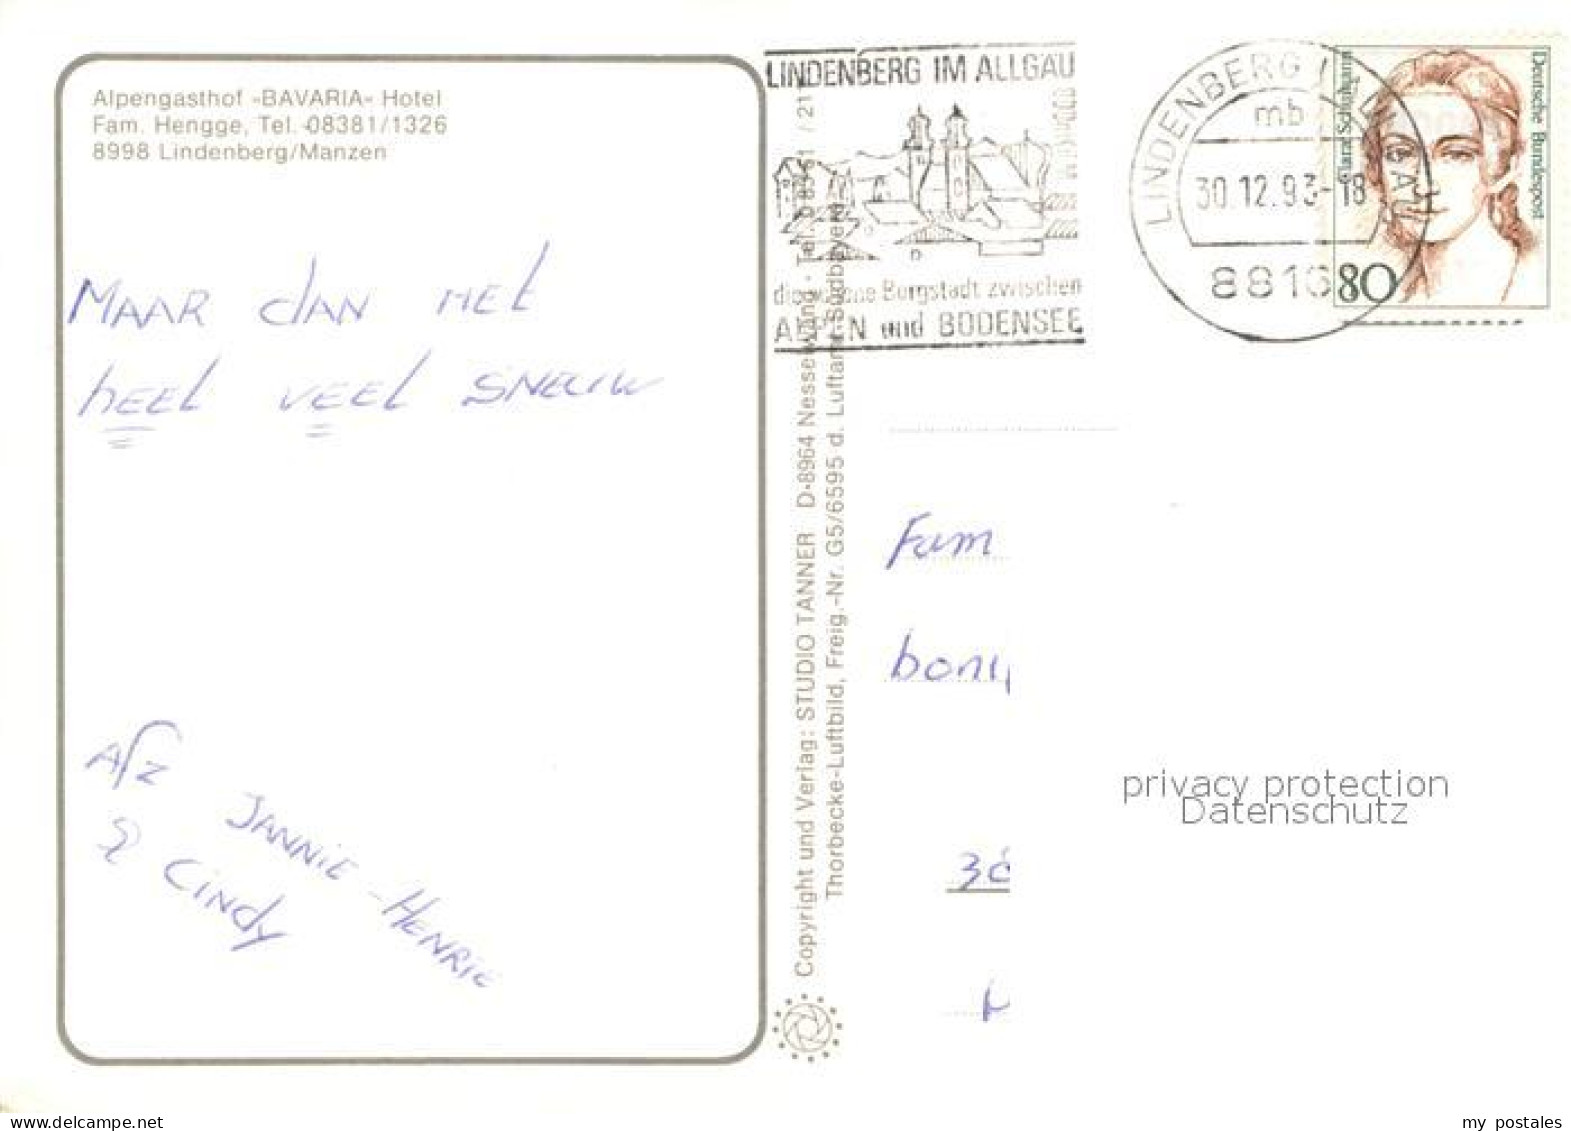 Alpengasthof »BAVARIA« Hotel
Fam. Hengge, Tel. 08381/1326
8998 Lindenberg/Manzen
MAAR dAN MEt
hEEL VEEL SNEEUW
Afz
JANNiE-HENRiE
& CiNdy
Copyright und Verlag: STUDIO TANNER D-8964 Nesselwang - Tel. 0 83 61 / 21
Thorbecke-Luftbild, Freig.-Nr. G5/6595 d. Luftamt Südbayern
LINDENBERG IM ALLGÄU
die schöne Bergstadt zwischen
ALPEN und BODENSEE
LINDENBERG I ALLGÄU
mb
30.12.93-18
8816
Clara Schumann
Deutsche Bundespost
80
Fam
privacy protection
Datenschutz
my postales